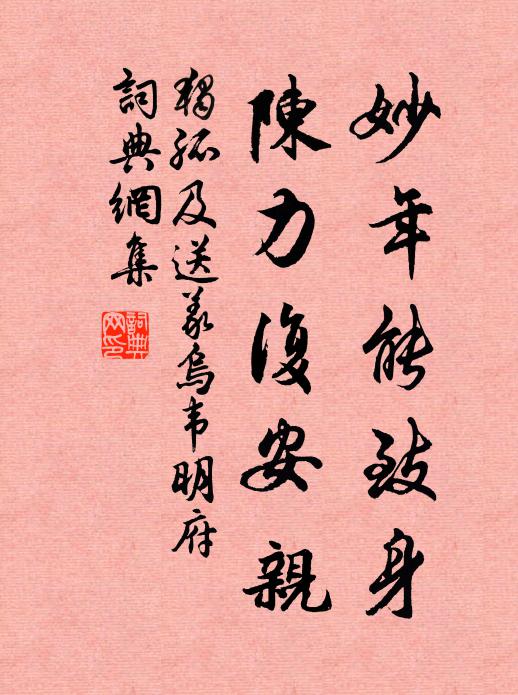 妙年能致身
陳力復安親
獨孤及送義烏韦明府
詞典網集
詞典網印